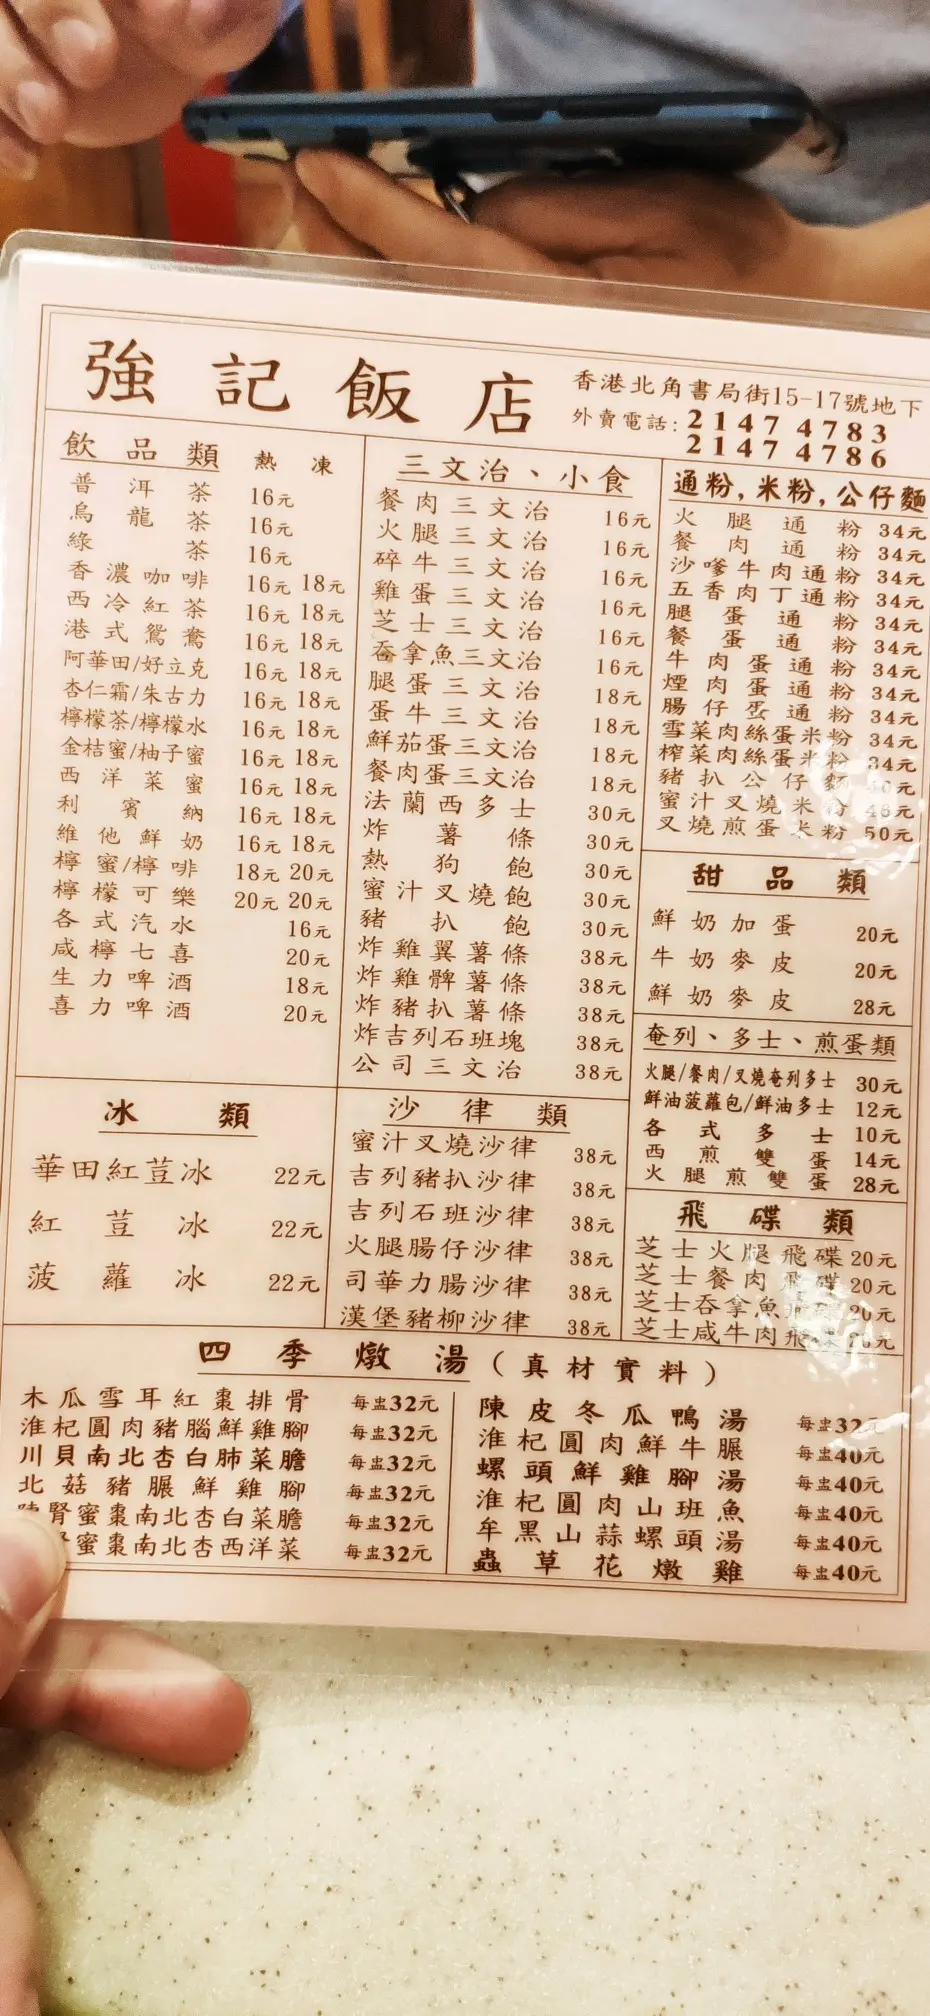 強記飯店
香港北角書局街15-17號地下
外賣電話: 2147 4783
2147 4786
飲品類 熱 凍
普洱茶 16元
烏龍茶 16元
綠茶 16元
香濃咖啡 16元 18元
西冷紅茶 16元 18元
港式鴛鴦 16元 18元
阿華田/好立克 16元 18元
杏仁霜/朱古力 16元 18元
檸檬茶/檸檬水 16元 18元
金桔蜜/柚子蜜 16元 18元
西洋菜蜜 16元 18元
利賓納 16元 18元
維他鮮奶 16元 18元
檸蜜/檸啡 18元 20元
檸檬可樂 20元 20元
各式汽水 16元
咸檸七喜 20元
生力啤酒 18元
喜力啤酒 20元
三文治、小食
餐肉三文治 16元
火腿三文治 16元
碎牛三文治 16元
雞蛋三文治 16元
芝士三文治 16元
吞拿魚三文治 16元
腿蛋三文治 18元
蛋牛三文治 18元
鮮茄蛋三文治 18元
餐肉蛋三文治 18元
法蘭西多士 30元
炸薯條 30元
熱狗飽 30元
蜜汁叉燒飽 30元
豬扒飽 30元
炸雞翼薯條 38元
炸雞髀薯條 38元
炸豬扒薯條 38元
炸吉列石班塊 38元
公司三文治 38元
通粉,米粉,公仔麵
火腿通粉 34元
餐肉通粉 34元
沙嗲牛肉通粉 34元
五香肉丁通粉 34元
腿蛋通粉 34元
餐蛋通粉 34元
牛肉蛋通粉 34元
煙肉蛋通粉 34元
腸仔蛋通粉 34元
雪菜肉絲蛋米粉 34元
榨菜肉絲蛋米粉 34元
豬扒公仔麵 元
蜜汁叉燒米粉 48元
叉燒煎蛋米粉 50元
甜品類
鮮奶加蛋 20元
牛奶麥皮 20元
鮮奶麥皮 28元
奄列、多士、煎蛋類
火腿/餐肉/叉燒奄列多士 30元
鮮油菠蘿包/鮮油多士 12元
各式多士 10元
西煎雙蛋 14元
火腿煎雙蛋 28元
冰類
華田紅荳冰 22元
紅荳冰 22元
菠蘿冰 22元
沙律類
蜜汁叉燒沙律 38元
吉列豬扒沙律 38元
吉列石班沙律 38元
火腿腸仔沙律 38元
司華力腸沙律 38元
漢堡豬柳沙律 38元
飛碟類
芝士火腿飛碟 20元
芝士餐肉飛碟 20元
芝士吞拿魚飛碟 20元
芝士咸牛肉飛碟 元
四季燉湯(真材實料)
木瓜雪耳紅棗排骨 每盅32元
淮杞圓肉豬腦鮮雞腳 每盅32元
川貝南北杏白肺菜膽 每盅32元
北菇豬𦟌鮮雞腳 每盅32元
腎蜜棗南北杏白菜膽 每盅32元
蜜棗南北杏西洋菜 每盅32元
陳皮冬瓜鴨湯 每盅32元
淮杞圓肉鮮牛𦟌 每盅40元
螺頭鮮雞腳湯 每盅40元
淮杞圓肉山班魚 每盅40元
牟黑山蒜螺頭湯 每盅40元
蟲草花燉雞 每盅40元